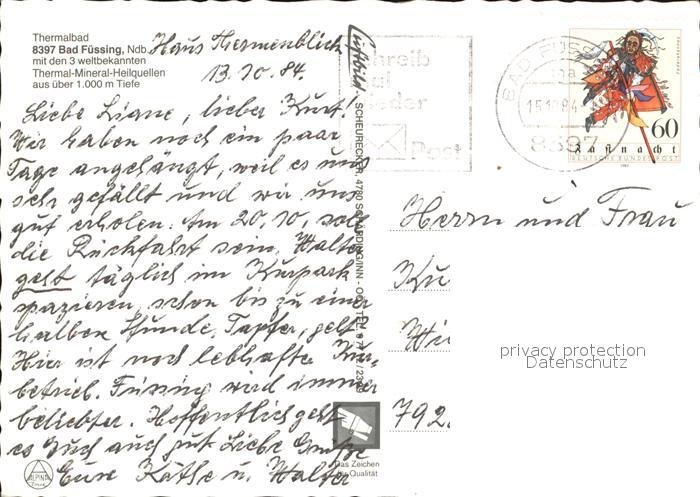 Thermalbad
8397 Bad Füssing, Ndb.
mit den 3 weltbekannten
Thermal-Mineral-Heilquellen
aus über 1.000 m Tiefe
Haus Thermenblick
13.10.84.
Liebe Liane, lieber Kurt.
Wir haben noch ein paar
Tage angehängt, weil es uns
sehr gefällt und wir uns
gut erholen. Am 20.10. soll
die Rückfahrt sein. Walter
geht täglich im Kurpark
spazieren, schon bis zu einer
halben Stunde. Tapfer, gelt?
Hier ist noch lebhafter Kur-
betrieb. Füssing wird immer
beliebter. Hoffentlich geht
es Euch auch gut. Liebe Grüße
Eure Käthe u. Walter
ALPINA
Luftbild
SCHEURECKER, 4780 SCHÄRDING/INN
Das Zeichen
für Qualität
Schreib
mal
wieder
Post
BAD FÜSS
15.10.84
8397
60
Fastnacht
DEUTSCHE BUNDESPOST
Herrn und Frau
Ku
792
privacy protection
Datenschutz